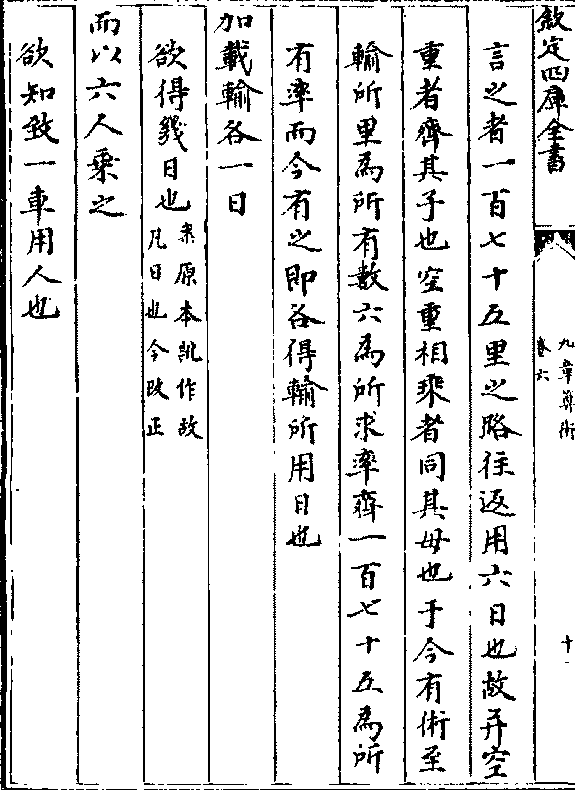 欽定四庫全書
九章算術
卷六
十
言之者一百七十五里之路往返用六日也故并空
重者齊其子也空重相乘者同其母也于今有術至
輸所里為所有數六為所求率齊一百七十五為所
有率而今有之即各得輸所用日也
加載輸各一日
欲得幾日也
案原本訛作故
凡日也今改正
而以六人乘之
欲知致一車用人也